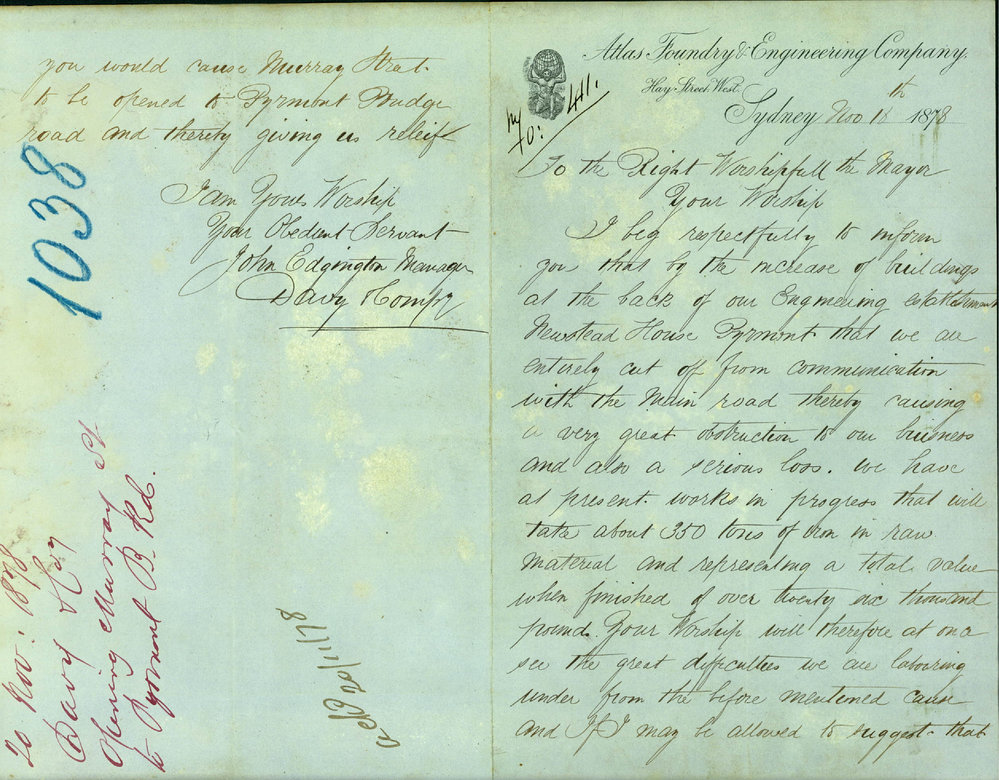 Atlas Foundry & Engineering Company.
Hay Street West.
Sydney Nov 18th 1878
411.
To the Right Worshipfull the Mayor
Your Worship
I beg respectfully to inform
you that by the increase of buildings
at the back of our Engineering establishment
Newstead House Pyrmont that we are
entirely cut off from communication
with the Main road thereby causing
a very great obstruction to our buisness
and also a serious loss. We have
at present works in progress that will
take about 350 tons of iron in raw
material and representing a total value
when finished of over twenty six thousand
pound. Your Worship will therefore at once
see the great difficulties we are labouring
under from the before mentioned cause
and If I may be allowed to suggest that
you would cause Murray Street
to be opened to Pyrmont Bridge
road and thereby giving us releif
I am Your Worship
Your Obedient Servant
John Edgington Manager
Davy & Compy
1038
20 Nov: 1878
Davy & Coy
Opening Murray St
to Pyrmont B. Rd.
ackd 20/11/78